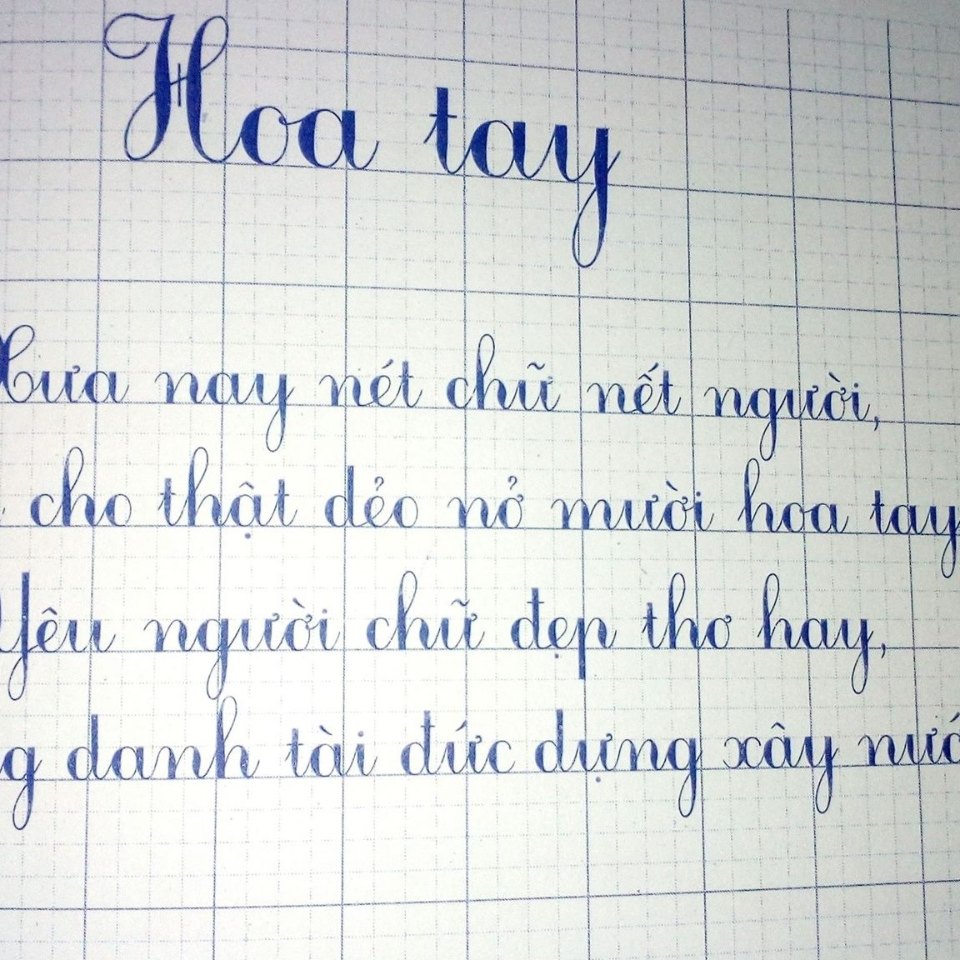 Hoa tay
Xưa nay nét chữ nết người,
cho thật dẻo nở mười hoa tay
Yêu người chữ đẹp thơ hay,
danh tài đức dựng xây